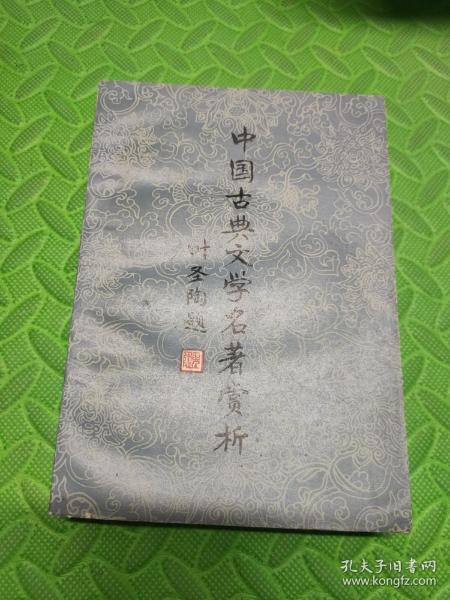 中国古典文学名著赏析
叶圣陶题
孔夫子旧书网
www.kongfz.com